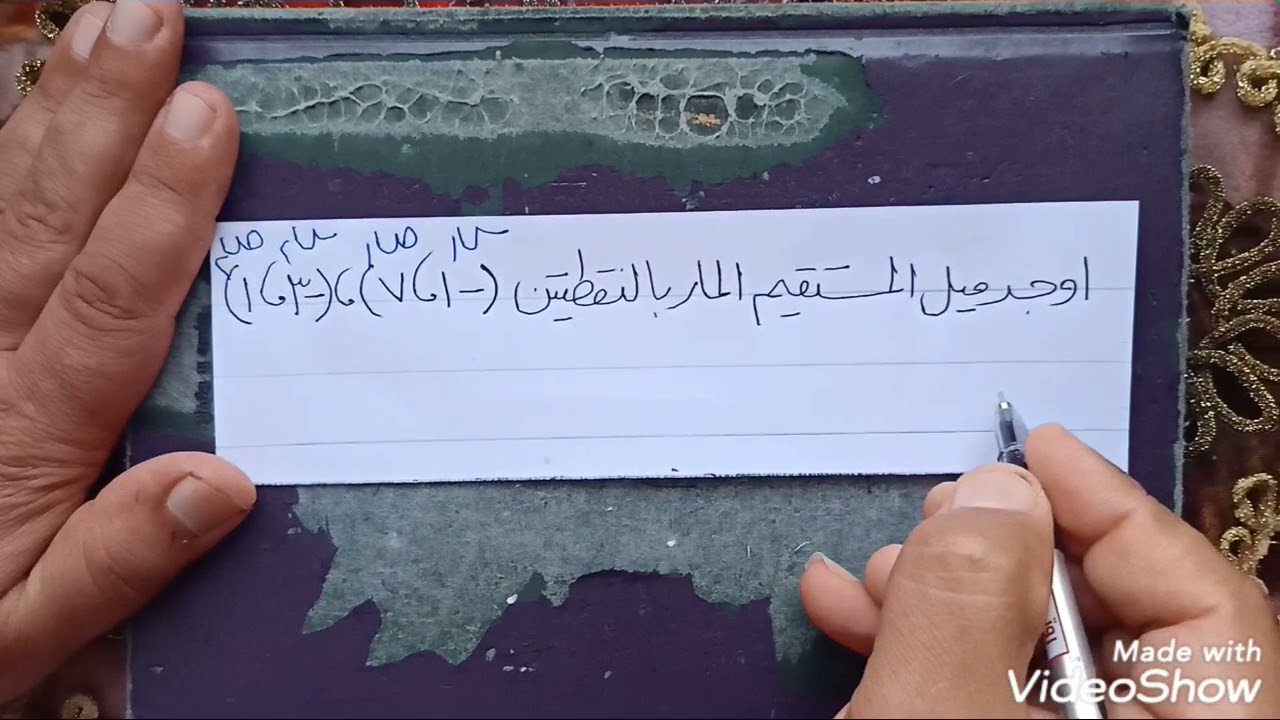 س١ ص١ س٢ ص٢
اوجد ميل المستقيم المار بالنقطتين (-١، ٧)، (-٣، ١)
Made with
VideoShow